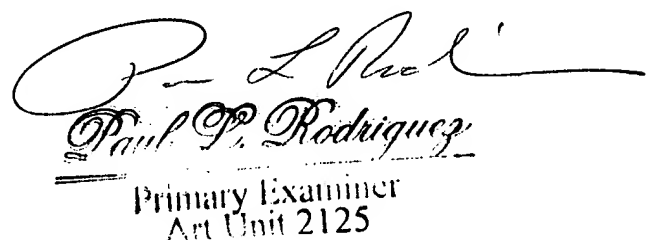 Paul P. Rodriguez
Primary Examiner
Art Unit 2125